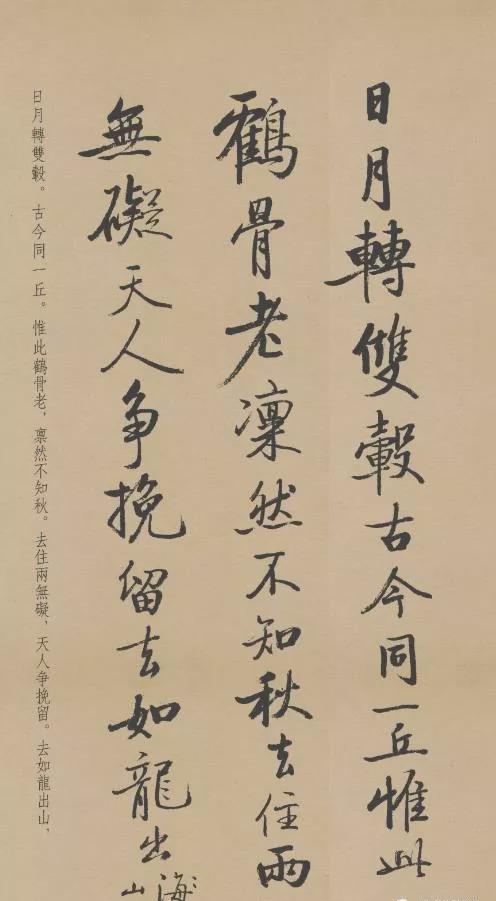 日月轉雙轂古今同一丘惟此
鶴骨老凜然不知秋去住兩
無礙天人爭挽留去如龍出
山
海
日月轉雙轂。古今同一丘。惟此鶴骨老，凛然不知秋。去住兩無礙，天人爭挽留。去如龍出山，